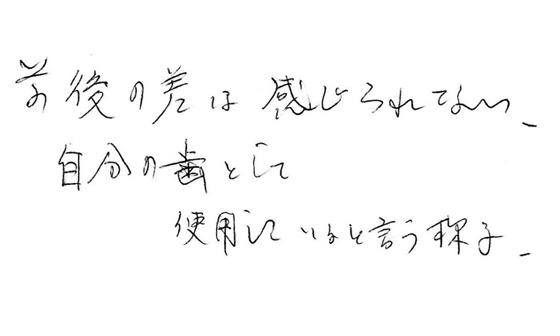 前後の差は感じられてない、
自分の歯として
使用していると言う様子、